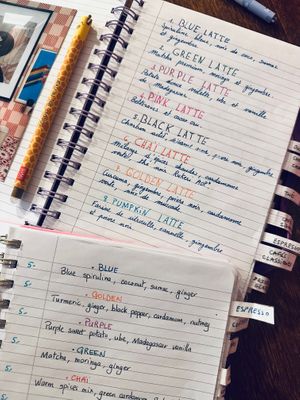 1. BLUE LATTE
Spiruline bleue, noix de coco, sumac
et gingembre
2. GREEN LATTE
Matcha premium, moringa et gingembre
3. PURPLE LATTE
Patate douce violette, ube et vanille
de Madagascar
4. PINK LATTE
Betterave et
5. BLACK LATTE
Charbon actif, noir, gingembre
6. CHAI LATTE
d'épices chaudes, cardamome
verte, thé noir
7. GOLDEN LATTE
Curcuma, gingembre, poivre noir, cardamome
verte, noix de muscade
8. PUMPKIN LATTE
Farine de citrouille, cannelle, gingembre
et poivre noir
ESPRESSO
5.
• BLUE
Blue spirulina, coconut, sumac, ginger
5.
• GOLDEN
Turmeric, ginger, black pepper, cardamom, nutmeg
5.
• PURPLE
Purple sweet potato, ube, Madagascar vanilla
5.
• GREEN
Matcha, moringa, ginger
• CHAI
Warm spices mix, green cardamom
ESPRESSO